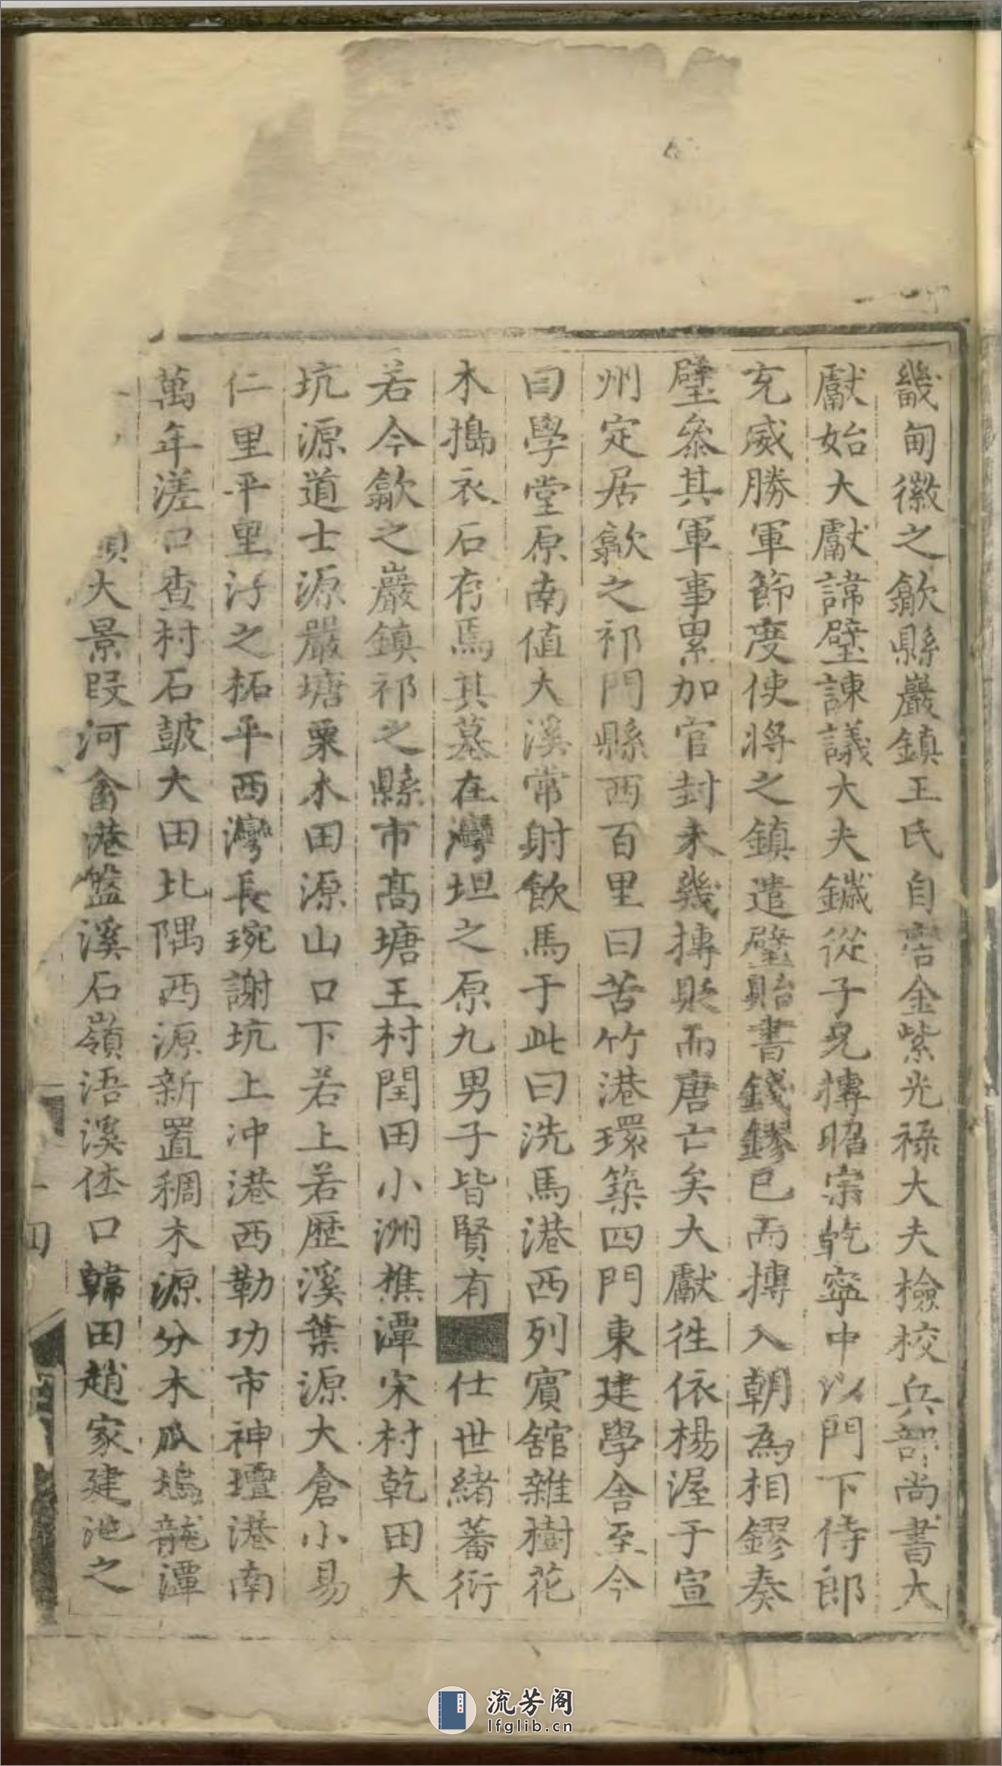 畿甸徽之歙縣巖鎮王氏自唐金紫光祿大夫檢校兵部尚書大
獻始大獻諱璧諫議大夫鐬從子兄摶昭宗乾寧中以門下侍郎
充威勝軍節度使將之鎮遣璧貽書錢鏐已而摶入朝為相鏐奏
璧叅其軍事累加官封未幾摶貶而唐亡矣大獻徃依楊渥于宣
州定居歙之祁門縣西百里曰苦竹港環築四門東建學舍至今
曰學堂原南値大溪常射飲馬于此曰洗馬港西列賔舘雜樹花
木搗衣石存焉其墓在灣坦之原九男子皆賢有仕世緒蕃衍
若今歙之巖鎮祁之縣市髙塘王村閏田小洲樵潭宋村乾田大
坑源道士源嚴塘栗木田源山口下若上若歷溪葉源大倉小易
仁里平里汸之柘平西灣長琬謝坑上冲港西勒功市神壇港南
萬年溠口查村石皷大田北隅西源新置稠木源分木瓜塢龍潭
大景段河畲港盤溪石嶺浯溪伾口韓田趙家建池之
四
流芳阁
lfglib.cn